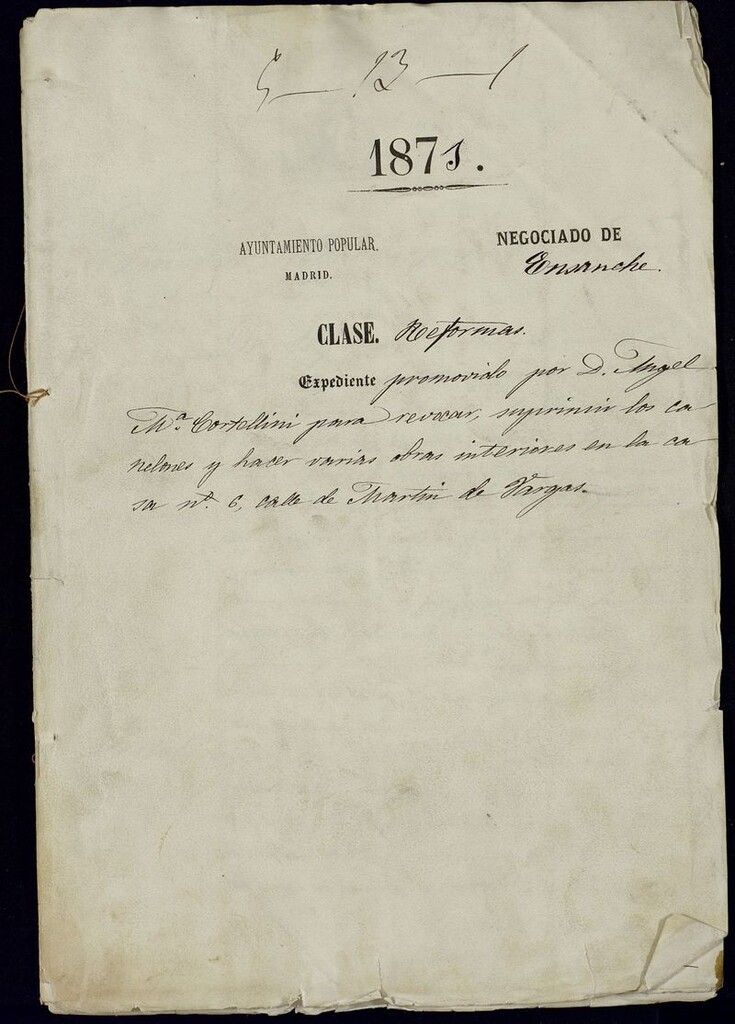 5 — 13 — 1
1871.
AYUNTAMIENTO POPULAR.
MADRID.
NEGOCIADO DE
Ensanche.
CLASE. Reformas.
Expediente promovido por D. Angel
Mª Cortellini para revocar, suprimir los ca
nelones y hacer varias obras interiores en la ca
sa nº 6, calle de Martin de Vargas.